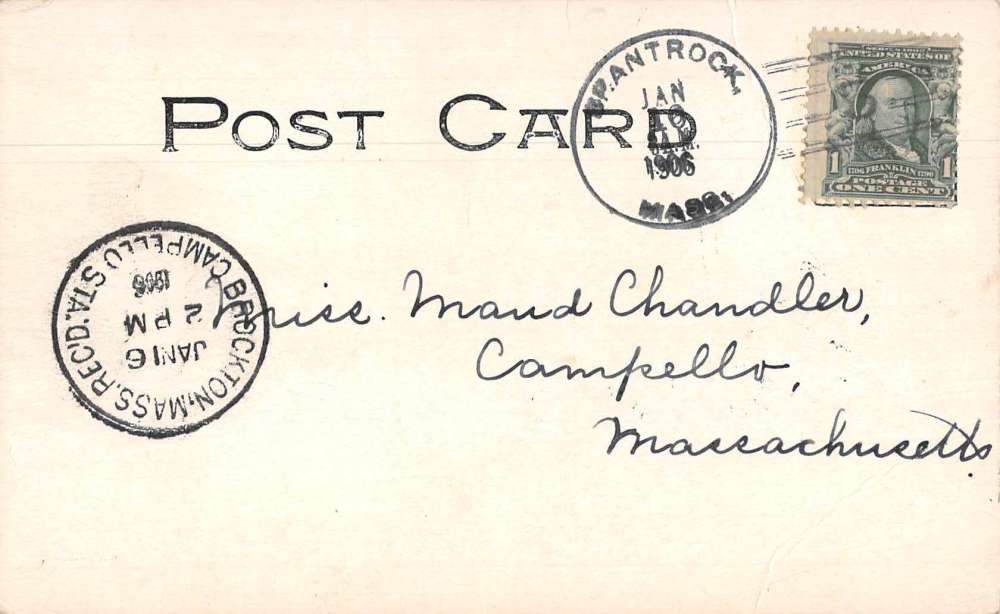 POST CARD
BRANTROCK,
JAN
16
1906
MASS.
SERIES 1902
UNITED STATES OF
AMERICA
1 1706 FRANKLIN 1790 1
POSTAGE
ONE CENT
BROCKTON, MASS. REC'D.
CAMPELLO STA.
JAN 16
2 PM
1906
Miss. Maud Chandler,
Campello,
Massachusetts